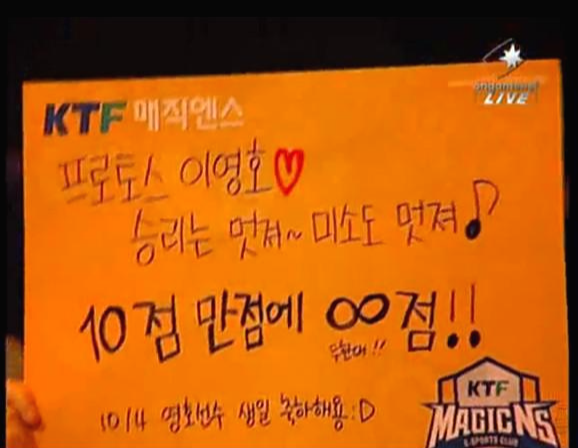 LIVE
KTF 매직엔스
프로토스 이영호♡
승리는 멋져~ 미소도 멋져♪
10점 만점에 ∞점!!
무한대!!
10/4 영호선수 생일 축하해용:D
KTF
MAGICNS
E-SPORTS CLUB